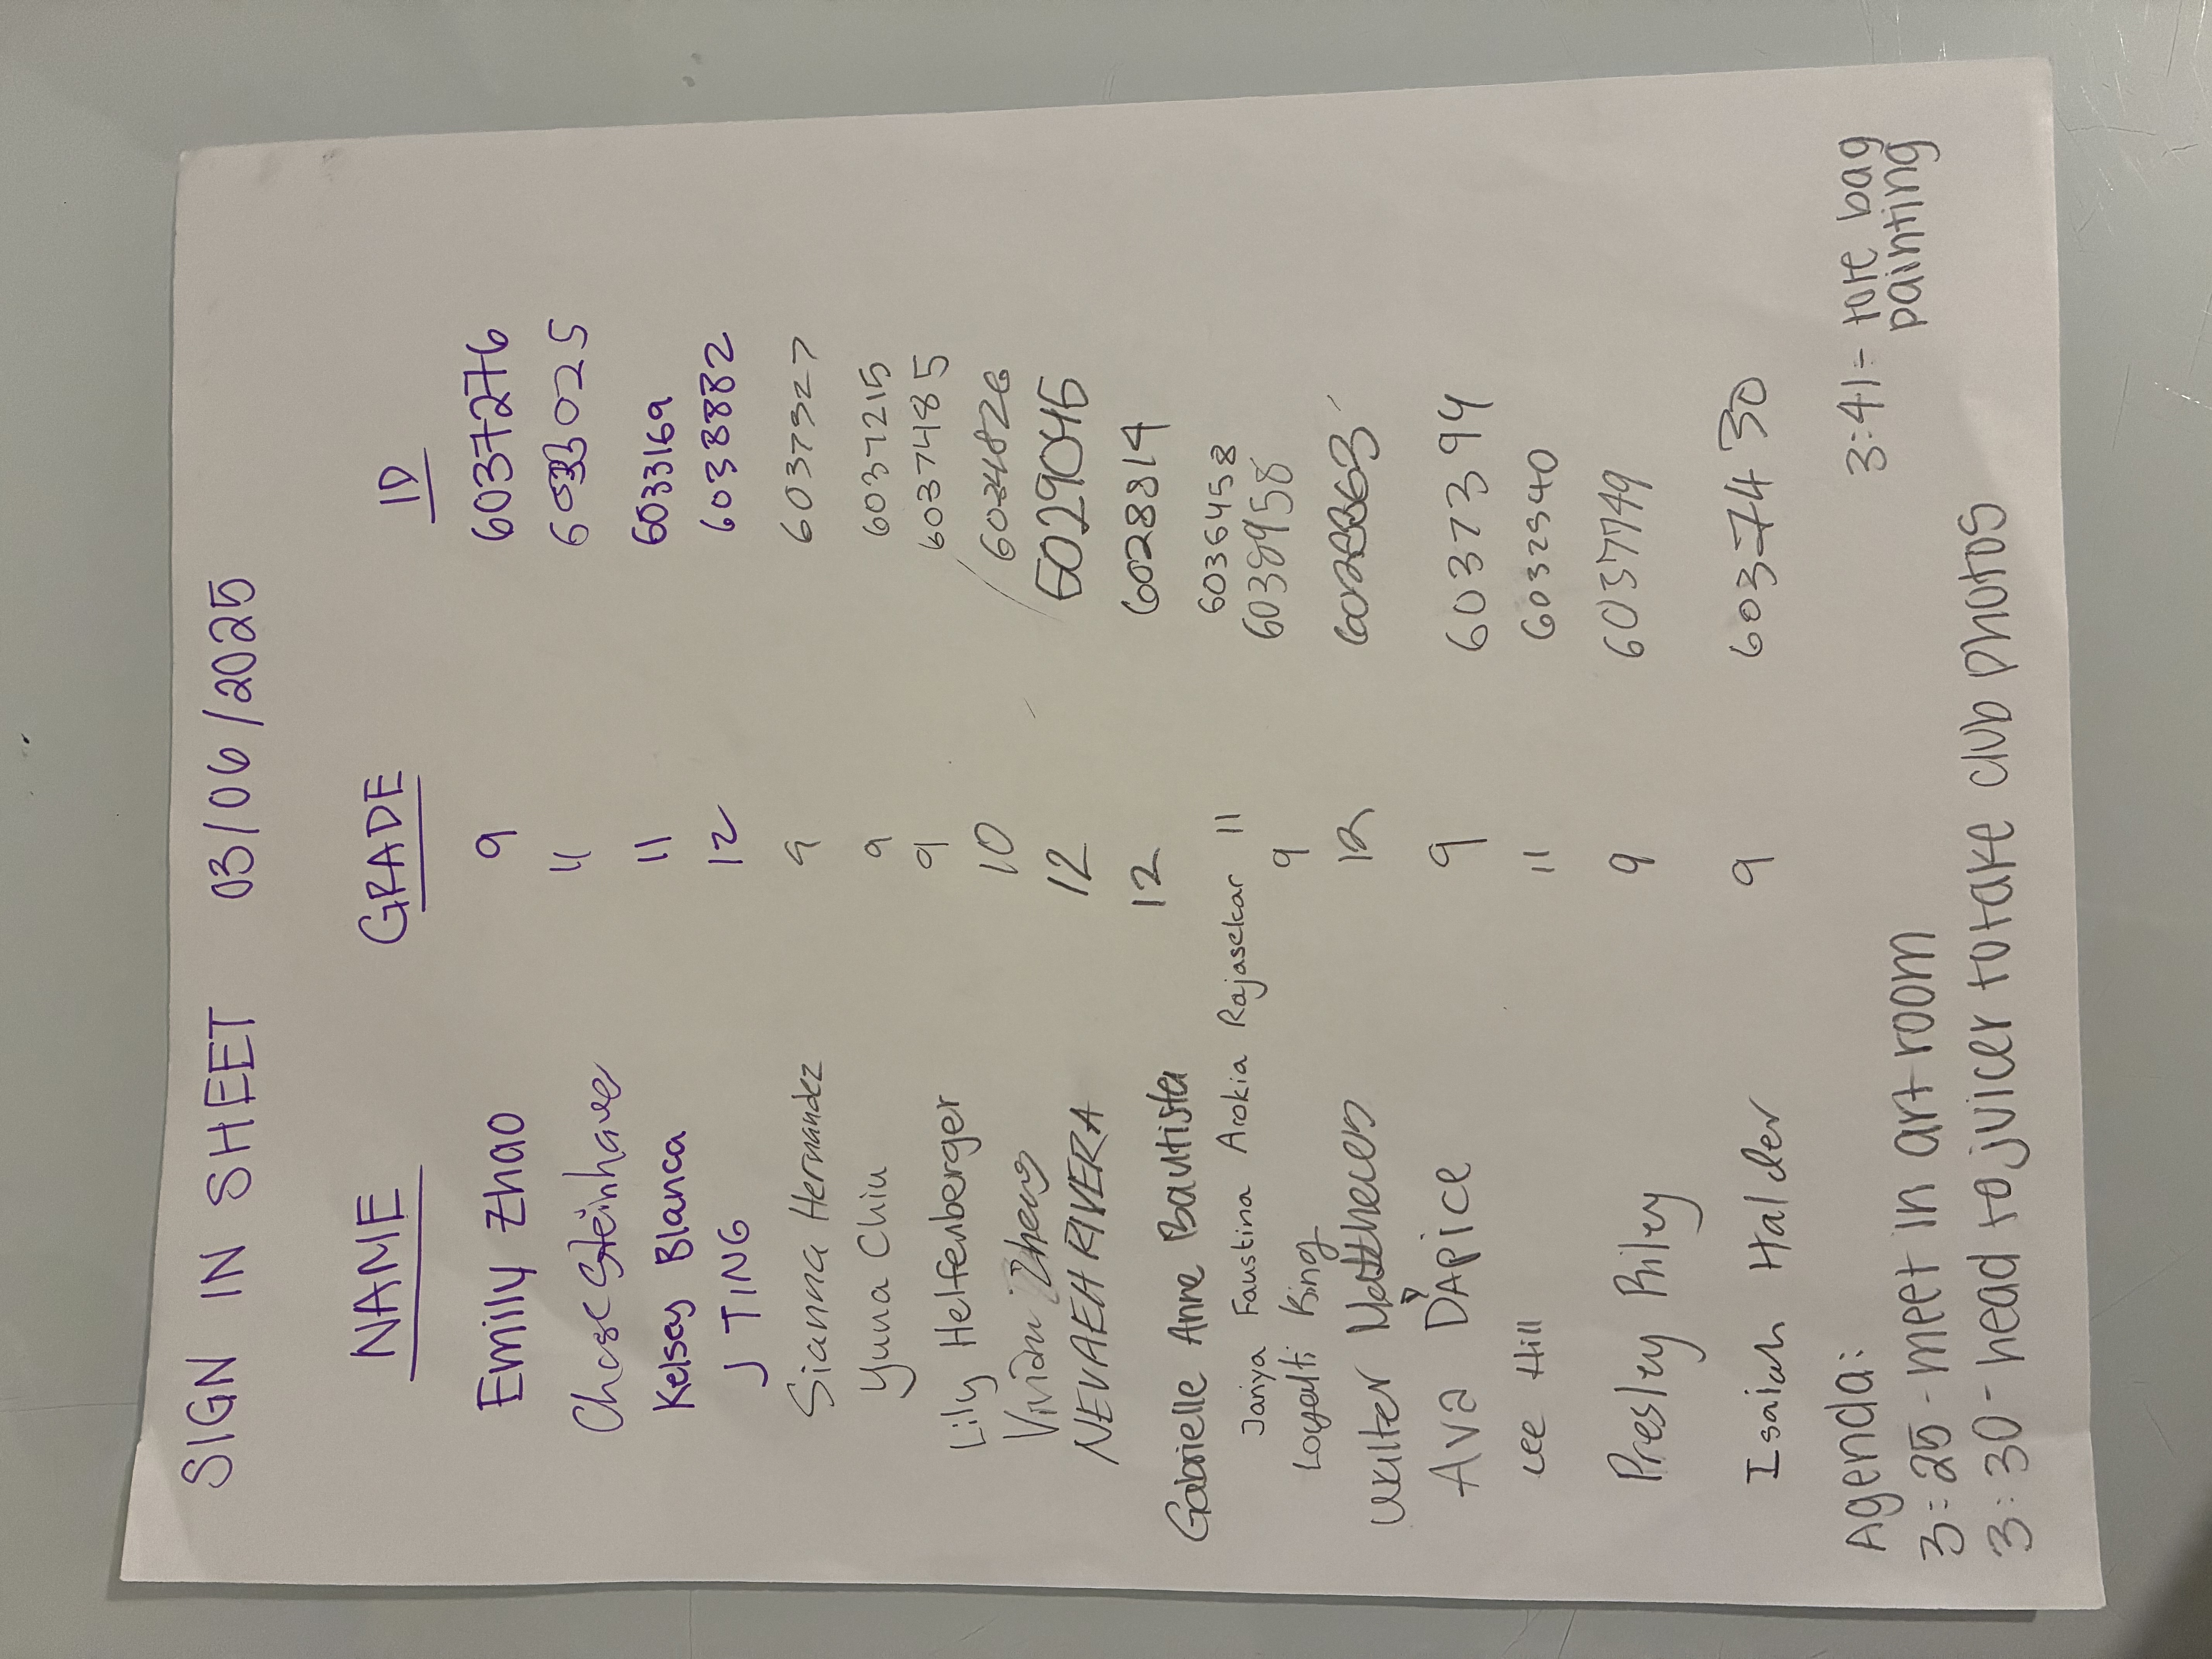 SIGN IN SHEET 03/06/2025
NAME GRADE ID
Emily Zhao 9 6037276
Chase Steinhauer 11 6033025
Kelsey Blanca 11 6033169
J TING 12 6038882
Sianna Hernandez 9 6037327
Yuna Chiu 9 6037215
Lily Helfenberger 9 6037485
Vivian Zheng 10
NEVAEH RIVERA 12 6029045
Gabrielle Anne Bautista 12 6028814
Janya Faustina Arokia Rajasekar 11 6036458
Loyalti King 9 6038958
Walter 12
Ava D'APICE 9 6037394
Lee Hill 11 6032340
Presley Riley 9 6037749
Isaiah Halder 9 6037430
Agenda:
3:25 - meet in art room
3:30 - head to juicer to take club photos
3:41 - tote bag
painting